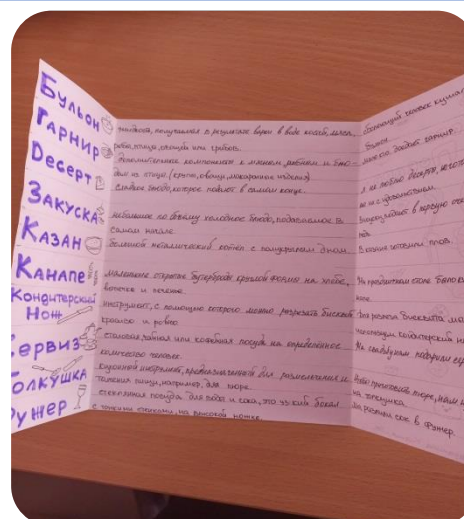 Бульон
Гарнир
Десерт
Закуска
Казан
Канапе
Кондитерский
Нож
ервиз
олкушка
ужер
жидкость, получаемая в результате варки в воде костей, мяса,
рыбы, птицы, овощей или грибов.
дополнительные компоненты к мясным, рыбным и блю-
дам из птицы (крупы, овощи, макаронные изделия)
сладкое блюдо, которое подают в самом конце.
небольшое по объёму холодное блюдо, подаваемое в
самом начале
большой металлический котёл с полукруглым дном.
маленькие открытые бутерброды круглой формы на хлебе,
и печенье.
инструмент, с помощью которого можно разрезать бисквит
красиво и ровно.
столовая, чайная или кофейная посуда на определённое
количество человек.
кухонный инструмент, предназначенный для размельчения и
толчения пищи, например, для пюре.
стеклянная посуда для воды и сока, это узкий бокал
с тонкими стенками, на высокой ножке.
человек кушал
бульон
гарнир.
Я не люблю десерт, но
с удовольствием.
Закуску подают в первую оче
В казане готовили плов.
На праздничном столе было
Для разреза бисквита
кондитерский
На свадьбу подарили
Надо приготовить пюре, нам
на толкушка.
сок в фужер.